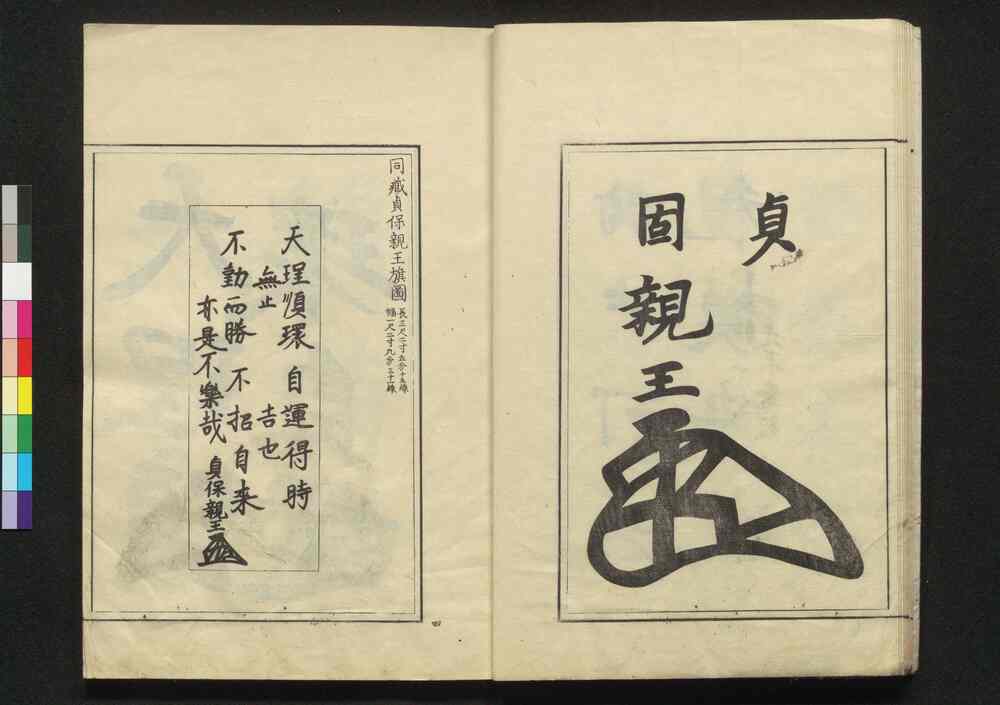 貞
固親王
同藏貞保親王旗圖
長三尺二寸五分十五線
幅一尺二寸九分三十線
天理順環自運得時
無止　吉也
不勤而勝不招自来
亦是不樂哉
貞保親王